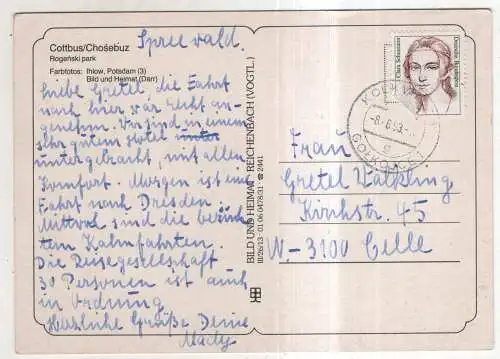 Cottbus/Chośebuz
Rogeński park
Farbfotos: Ihlow, Potsdam (3)
Bild und Heimat (Darr)
Spreewald.
Liebe Gretel, die Fahrt
nach hier war recht an-
genehm. Wir sind in einem
sehr gutem Hotel
untergebracht, mit allem
Komfort. Morgen ist eine
Fahrt nach Dresden
Mittwoch sind die berühm
ten Kahnfahrten.
Die Reisegesellschaft
30 Personen ist auch
in Ordnung
Herzliche Grüße Deine
Mady
BILD UND HEIMAT · REICHENBACH (VOGTL.)
III/26/13 · 01 06 0478/31 · ☎ 2441
Clara Schumann
Deutsche Bundespost
Frau
Gretel
Kirchstr. 45
W-3100 Celle